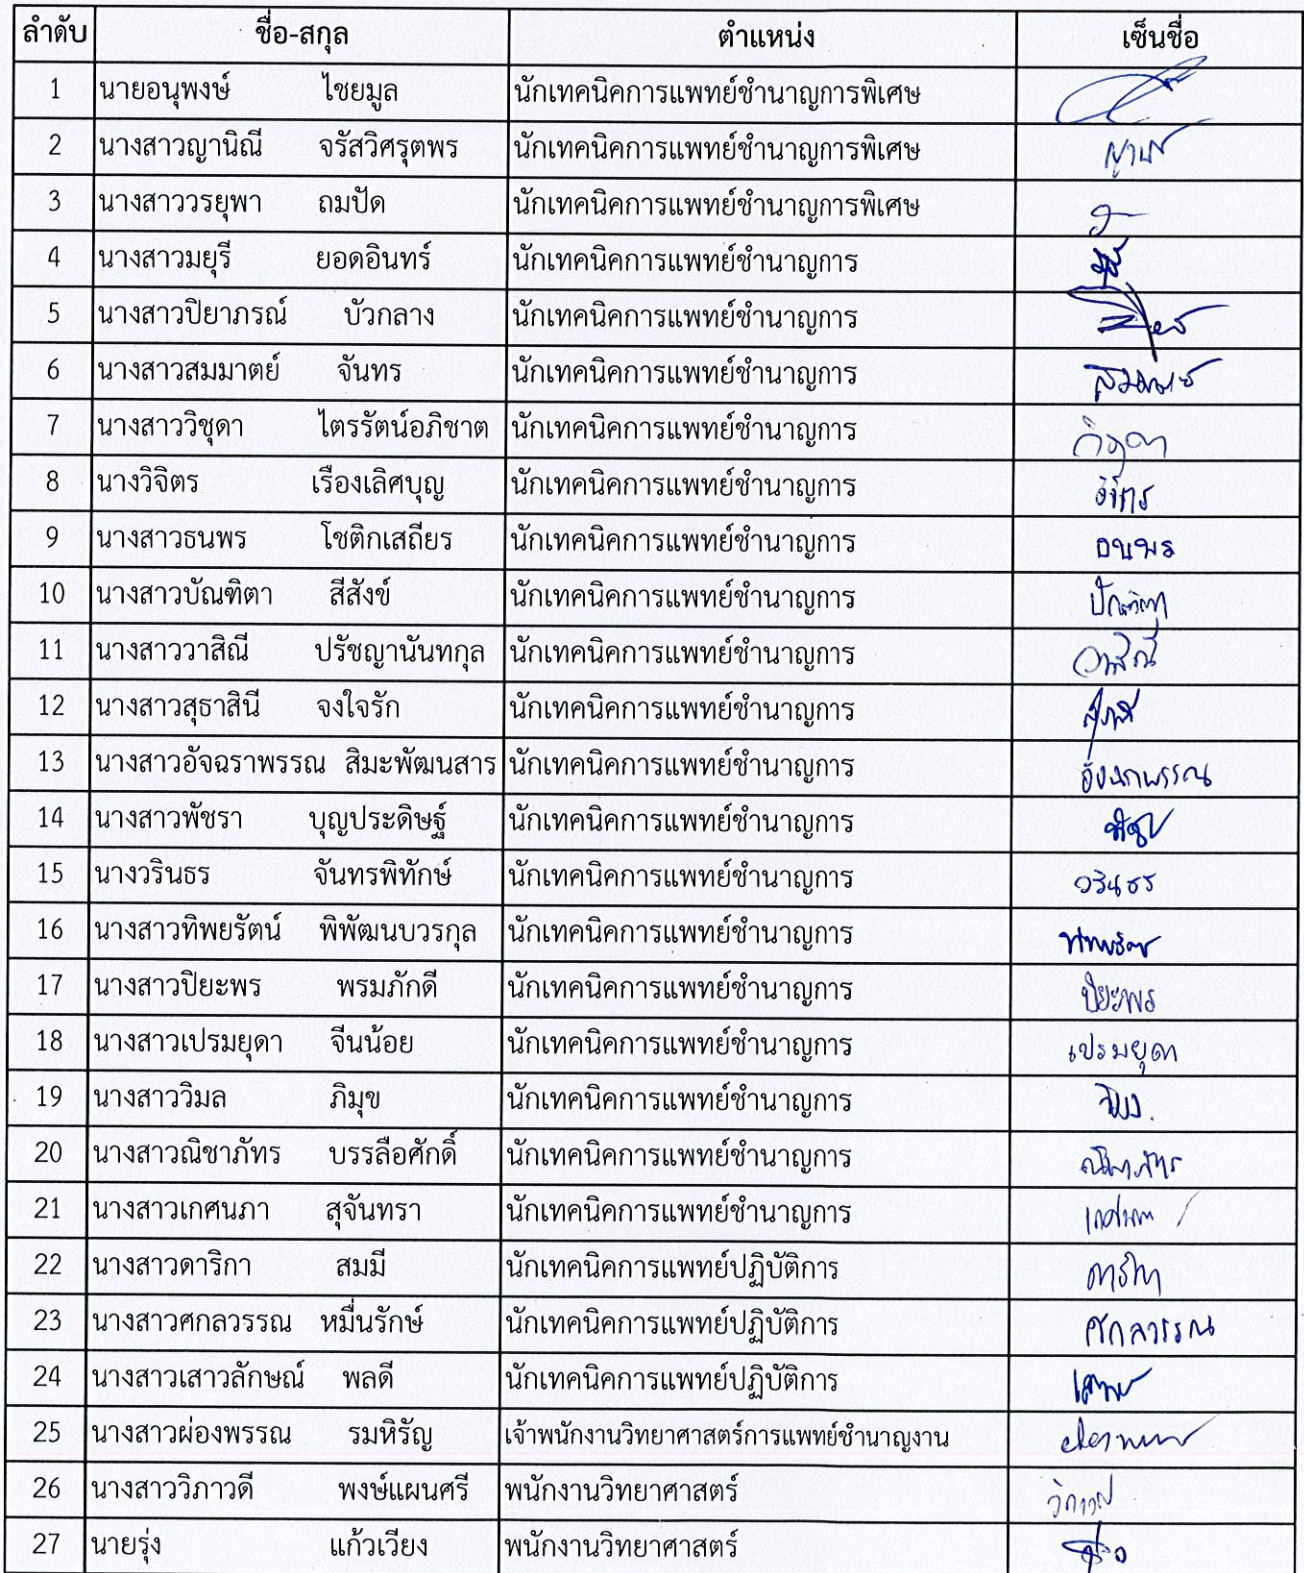 ลำดับ ชื่อ-สกุล ตำแหน่ง เซ็นชื่อ
1 นายอนุพงษ์ ไชยมูล นักเทคนิคการแพทย์ชำนาญการพิเศษ
2 นางสาวญานิณี จรัสวิศรุตพร นักเทคนิคการแพทย์ชำนาญการพิเศษ
3 นางสาววรยุพา ถมปัด นักเทคนิคการแพทย์ชำนาญการพิเศษ
4 นางสาวมยุรี ยอดอินทร์ นักเทคนิคการแพทย์ชำนาญการ
5 นางสาวปิยาภรณ์ บัวกลาง นักเทคนิคการแพทย์ชำนาญการ
6 นางสาวสมมาตย์ จันทร นักเทคนิคการแพทย์ชำนาญการ
7 นางสาววิชุดา ไตรรัตน์อภิชาต นักเทคนิคการแพทย์ชำนาญการ วิชุดา
8 นางวิจิตร เรืองเลิศบุญ นักเทคนิคการแพทย์ชำนาญการ วิจิตร
9 นางสาวธนพร โชติกเสถียร นักเทคนิคการแพทย์ชำนาญการ ธนพร
10 นางสาวบัณฑิตา สีสังข์ นักเทคนิคการแพทย์ชำนาญการ บัณฑิตา
11 นางสาววาสิณี ปรัชญานันทกุล นักเทคนิคการแพทย์ชำนาญการ วาสิณี
12 นางสาวสุธาสินี จงใจรัก นักเทคนิคการแพทย์ชำนาญการ
13 นางสาวอัจฉราพรรณ สิมะพัฒนสาร นักเทคนิคการแพทย์ชำนาญการ อัจฉราพรรณ
14 นางสาวพัชรา บุญประดิษฐ์ นักเทคนิคการแพทย์ชำนาญการ
15 นางวรินธร จันทรพิทักษ์ นักเทคนิคการแพทย์ชำนาญการ วรินธร
16 นางสาวทิพยรัตน์ พิพัฒนบวรกุล นักเทคนิคการแพทย์ชำนาญการ ทิพยรัตน์
17 นางสาวปิยะพร พรมภักดี นักเทคนิคการแพทย์ชำนาญการ ปิยะพร
18 นางสาวเปรมยุดา จีนน้อย นักเทคนิคการแพทย์ชำนาญการ เปรมยุดา
19 นางสาววิมล ภิมุข นักเทคนิคการแพทย์ชำนาญการ
20 นางสาวณิชาภัทร บรรลือศักดิ์ นักเทคนิคการแพทย์ชำนาญการ ณิชาภัทร
21 นางสาวเกศนภา สุจันทรา นักเทคนิคการแพทย์ชำนาญการ เกศนภา
22 นางสาวดาริกา สมมี นักเทคนิคการแพทย์ปฏิบัติการ ดาริกา
23 นางสาวศกลวรรณ หมื่นรักษ์ นักเทคนิคการแพทย์ปฏิบัติการ ศกลวรรณ
24 นางสาวเสาวลักษณ์ พลดี นักเทคนิคการแพทย์ปฏิบัติการ
25 นางสาวผ่องพรรณ รมหิรัญ เจ้าพนักงานวิทยาศาสตร์การแพทย์ชำนาญงาน
26 นางสาววิภาวดี พงษ์แผนศรี พนักงานวิทยาศาสตร์
27 นายรุ่ง แก้วเวียง พนักงานวิทยาศาสตร์